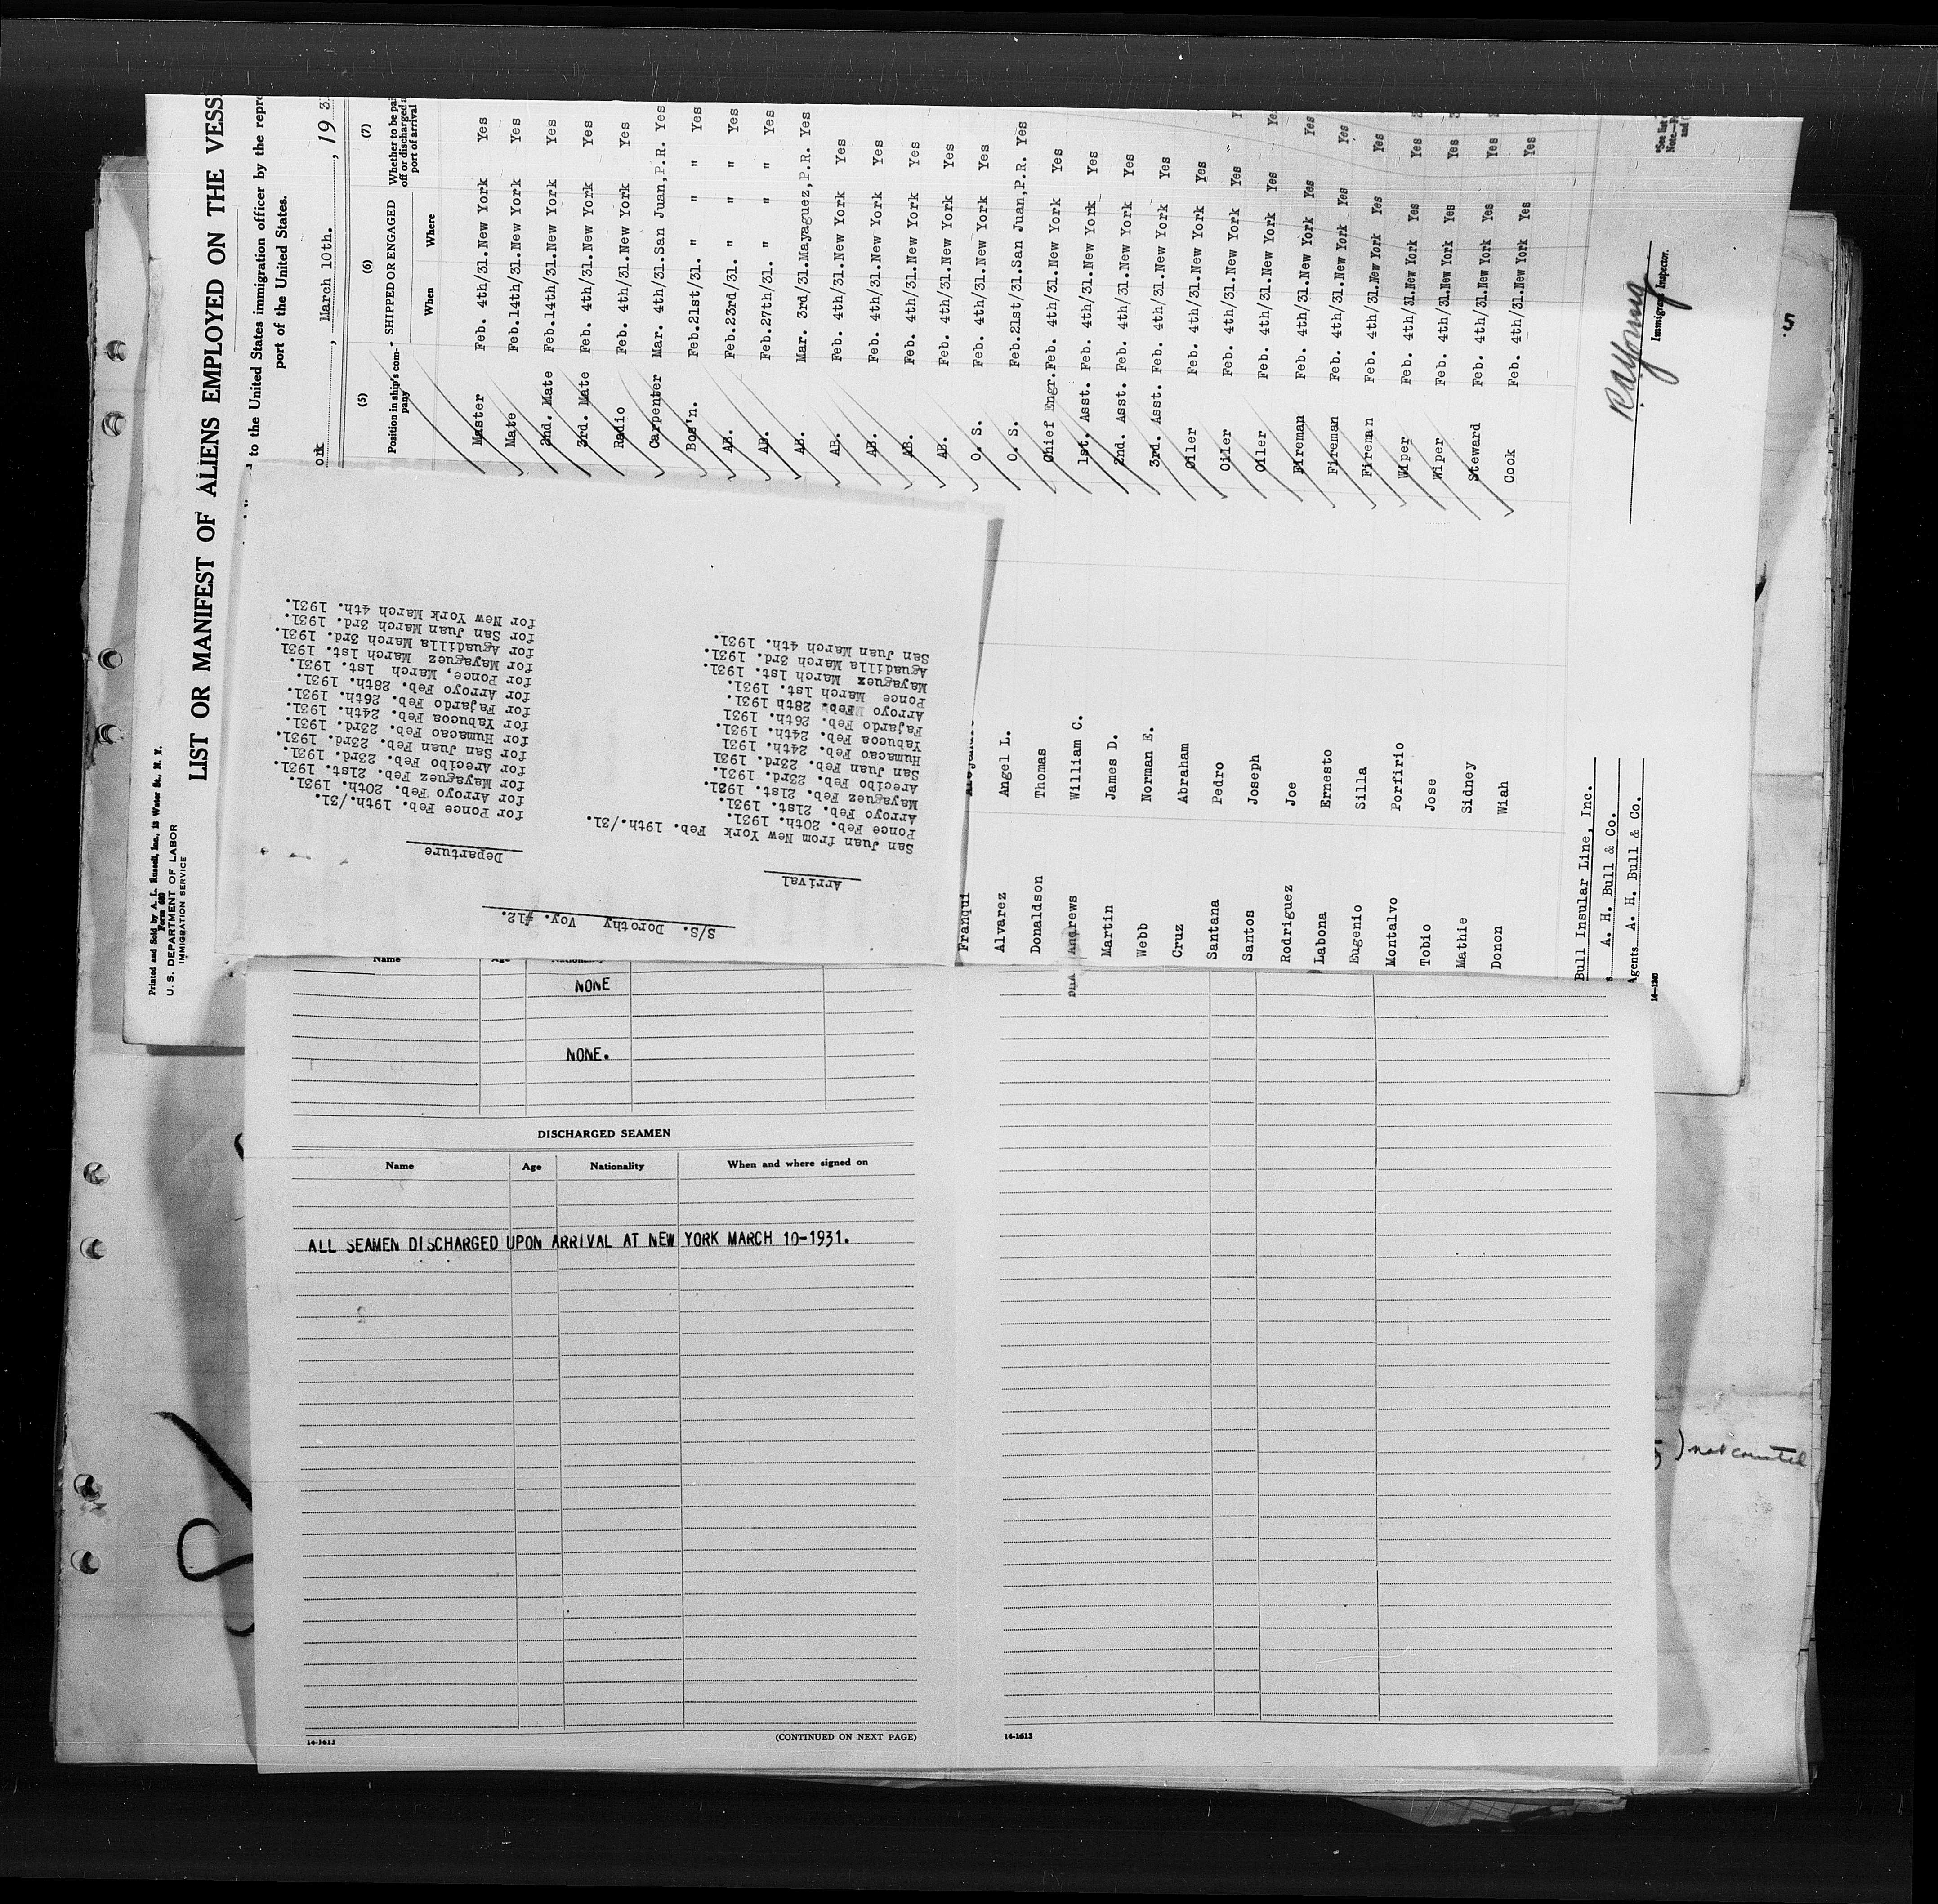 Printed and Sold by A. L. Russell, Inc., 13 Water St., N. Y.
Form 680
U. S. DEPARTMENT OF LABOR
IMMIGRATION SERVICE
LIST OR MANIFEST OF ALIENS EMPLOYED ON THE VESS
to the United States immigration officer by the repre
port of the United States.
ork , March 10th. , 19 3
(5) (6) (7)
Position in ship's company SHIPPED OR ENGAGED Whether to be pai off or discharged a port of arrival
When Where
Master Feb. 4th/31. New York Yes
Mate Feb.14th/31. New York Yes
2nd. Mate Feb.14th/31. New York Yes
3rd. Mate Feb. 4th/31. New York Yes
Radio Feb. 4th/31. New York Yes
Carpenter Mar. 4th/31. San Juan,P.R. Yes
Bos'n. Feb.21st/31. " " Yes
AB. Feb.23rd/31. " " Yes
AB. Feb.27th/31. " " Yes
AB. Mar. 3rd/31. Mayaguez,P.R. Yes
AB. Feb. 4th/31. New York Yes
AB. Feb. 4th/31. New York Yes
AB. Feb. 4th/31. New York Yes
AB. Feb. 4th/31. New York Yes
Franqui O. S. Feb. 4th/31. New York Yes
Alvarez Angel L. O. S. Feb.21st/31. San Juan,P.R. Yes
Donaldson Thomas Chief Engr. Feb. 4th/31. New York Yes
Andrews William C. 1st. Asst. Feb. 4th/31. New York Yes
Martin James D. 2nd. Asst. Feb. 4th/31. New York Yes
Webb Norman E. 3rd. Asst. Feb. 4th/31. New York Yes
Cruz Abraham Oiler Feb. 4th/31. New York Yes
Santana Pedro Oiler Feb. 4th/31. New York Yes Y
Santos Joseph Oiler Feb. 4th/31. New York Yes Ye
Rodriguez Joe Fireman Feb. 4th/31. New York Yes Yes
Labona Ernesto Fireman Feb. 4th/31. New York Yes Yes
Eugenio Silla Fireman Feb. 4th/31. New York Yes Yes
Montalvo Porfirio Wiper Feb. 4th/31. New York Yes Yes
Tobio Jose Wiper Feb. 4th/31. New York Yes Yes
Mathie Sidney Steward Feb. 4th/31. New York Yes Yes
Donon Wiah Cook Feb. 4th/31. New York Yes Yes
Bull Insular Line, Inc.
s A. H. Bull & Co.
Agents A. H. Bull & Co.
Immigrant Inspector.
14-1240
S/S. Dorothy Voy. #12.
Arrival Departure
San Juan from New York Feb. 19th./31. for Ponce Feb. 19th./31.
Ponce Feb. 20th. 1931. for Arroyo Feb. 20th. 1931.
Arroyo Feb. 21st. 1931. for Mayaguez Feb. 21st. 1931.
Mayaguez Feb. 21st. 1931. for Arecibo Feb. 23rd. 1931.
Arecibo Feb. 23rd. 1931. for San Juan Feb. 23rd. 1931.
San Juan Feb. 23rd. 1931 for Humacao Feb. 23rd. 1931.
Humacao Feb. 24th. 1931 for Yabucoa Feb. 24th. 1931.
Yabucoa Feb. 24th. 1931. for Fajardo Feb. 26th. 1931.
Fajardo Feb. 26th. 1931 for Arroyo Feb. 28th. 1931.
Arroyo Feb. 28th 1931. for Ponce, March 1st. 1931.
Ponce March 1st. 1931. for Mayaguez March 1st. 1931
Mayaguez March 1st. 1931. for Aguadilla March 3rd. 1931.
Aguadilla March 3rd. 1931. for San Juan March 3rd. 1931.
San Juan March 4th. 1931. for New York March 4th. 1931.
Name Age Nationality
NONE
NONE.
DISCHARGED SEAMEN
Name Age Nationality When and where signed on
ALL SEAMEN DISCHARGED UPON ARRIVAL AT NEW YORK MARCH 10-1931.
14-1613 (CONTINUED ON NEXT PAGE)
14-1613
5 ) not counted
5